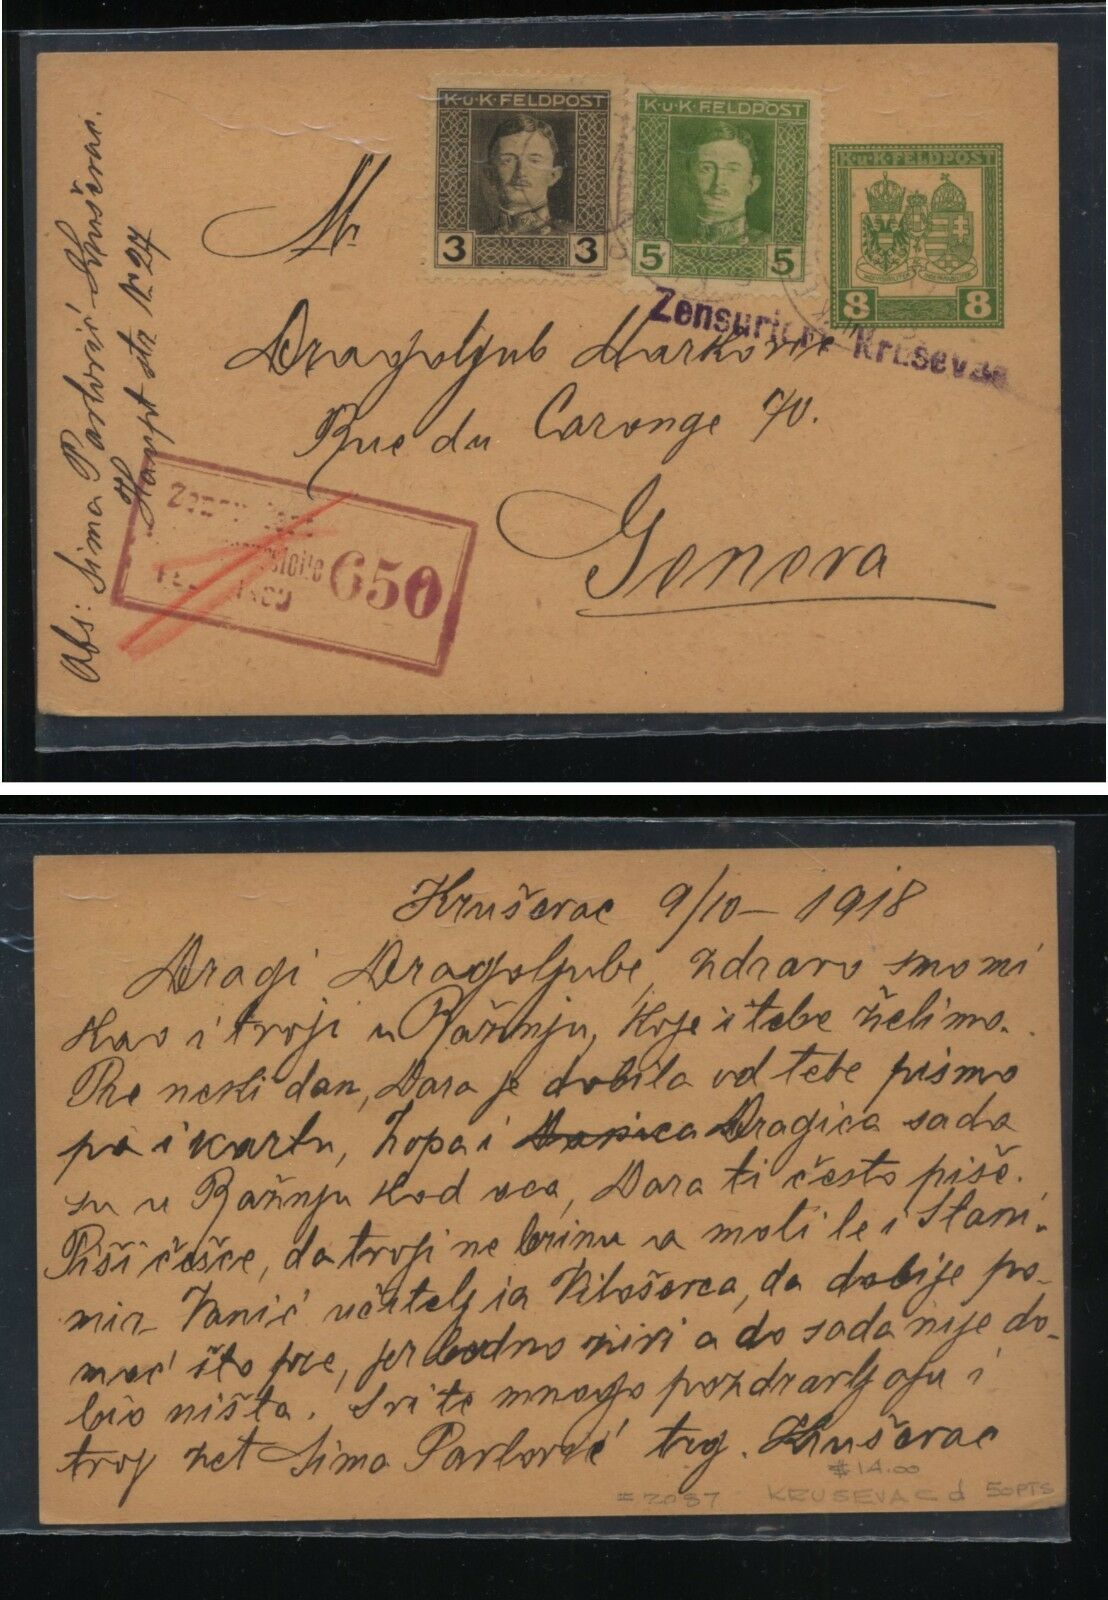 K·u·K·FELDPOST
3 3
K·u·K·FELDPOST
5 5
K·u·K·FELDPOST
8 8
Abs: Sima Pavlović Kruševac.
Haupt str. Nr 27
Mr
Dragoljub Marković
Rue du Carouge 70.
Geneva
Zensuriert Kruševac
650
Kruševac 9/10 – 1918
Dragi Dragoljube, zdravo smo mi
kao i tvoji u Ražnju, koje i tebe želimo.
Pre neki dan, Dara je dobila od tebe pismo
pa i kartu, Zopa i Dragica sada
su u Ražnju kod oca, Dara ti često piše.
Piši češće, da tvoji ne brinu a moli te i Stani-
mir Janić učitelj iz Vitoševca, da dobije po-
moć što pre, jer bedno živi a do sada nije do-
bio ništa. Svi te mnogo pozdravljaju i
tvoj zet Sima Pavlović trg. Kruševac
$14.00
=2087 KRUSEVAC d 50PTS